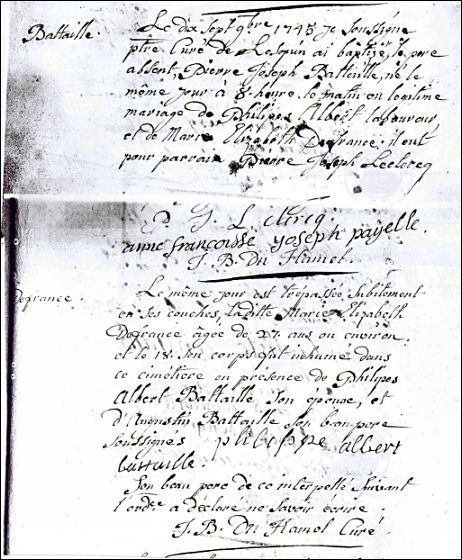 Battaille.
Le dix Sept 9bre 1745 Je Soussigné
ptre Curé de Lesquin ai baptizé, le pere
absent, Pierre Joseph Battaille, né le
même jour à 8 heure le matin en legitime
mariage de Philipes Albert laboureur
et de Marie Elizabeth Defrance; il eut
pour parrain Pierre Joseph Leclercq
P J L clercq.
anne françoisse yoseph payelle.
J. B. Du Hamel.
Defrance.
Le même jour est trepassée subitement
en ses couches, laditte Marie Elizabeth
Defrance âgée de 27 ans ou environ.
et le 18 son corps fut inhumé dans
ce cimetiere en presence de Philipes
Albert Battaille son epoux, et
d'Augustin Battaille son beau pere
soussignés philippe albert
battaille.
Son beau pere de ce interpellé suivant
l'ordce a declaré ne savoir écrire.
J. B. Du Hamel Curé.